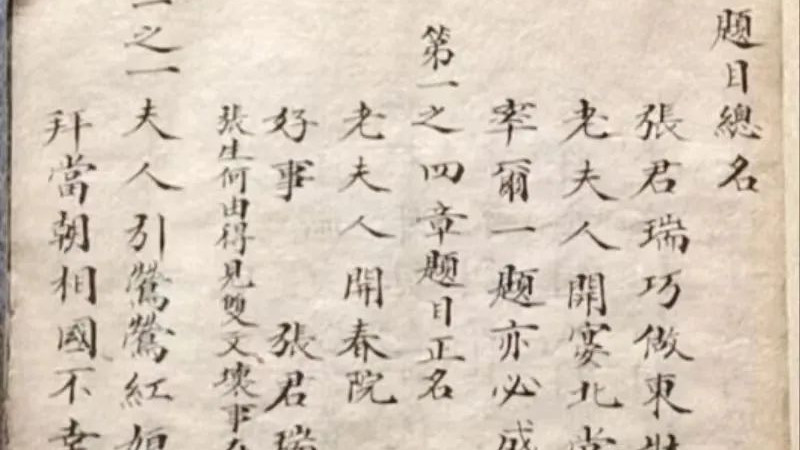 題目總名
張君瑞巧做東
老夫人開宴北堂
率爾一題亦必成
第一之四章題目正名
老夫人開春院
好事 張君瑞
張生何由得見雙文、壞事
一之一 夫人引鶯鶯紅娘
拜當朝相國不幸